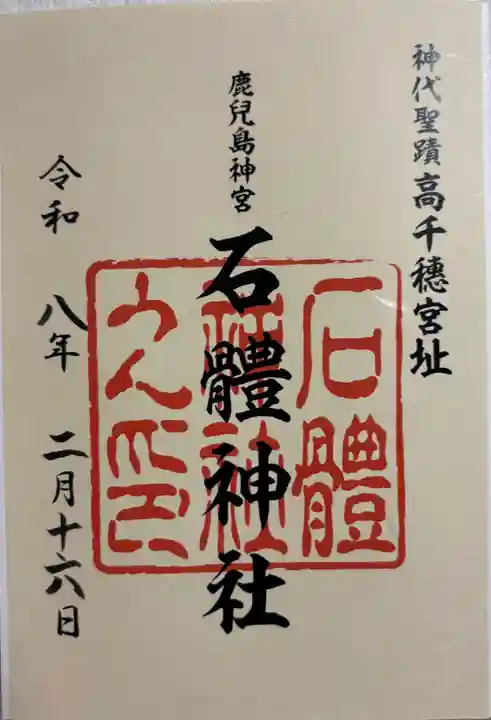 神代聖蹟高千穗宮址
鹿兒島神宮
石體神社
令和 八年 二月十六日
石體
神社